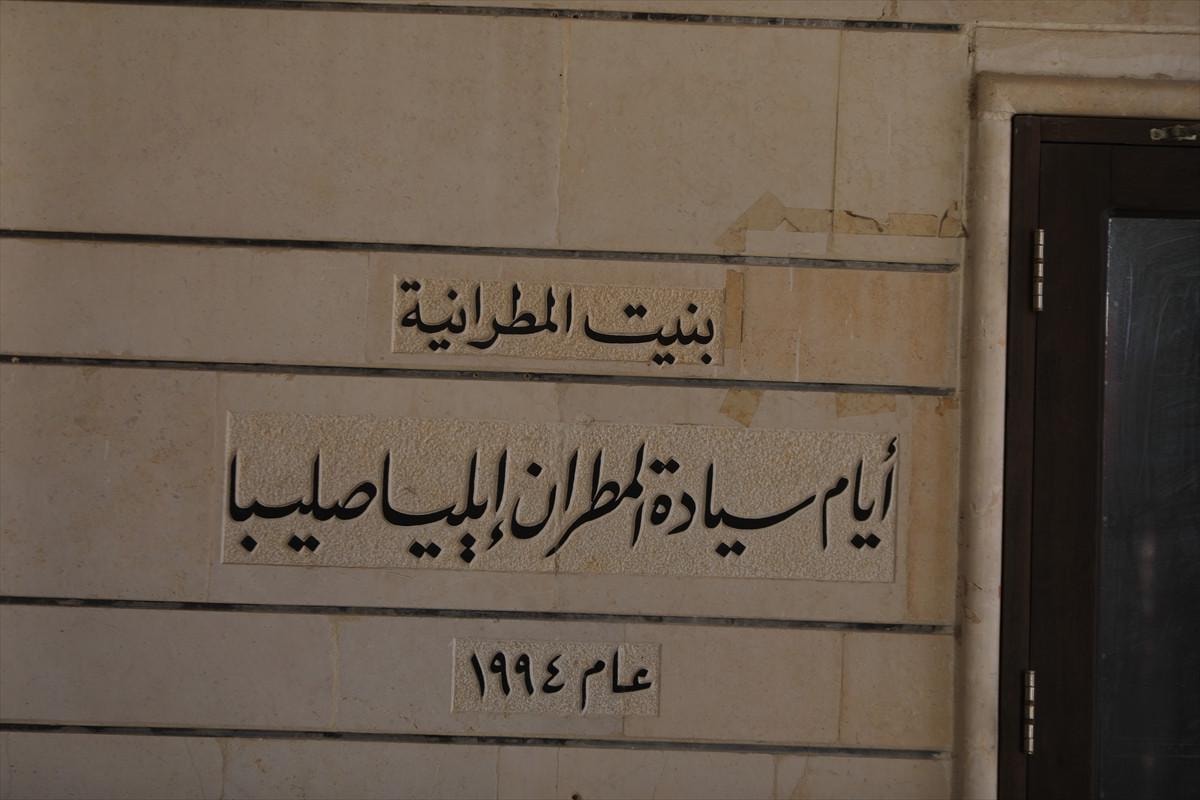 بنيت المطرانية
أيام سيادة المطران إيليا صليبا
عام ١٩٩٤